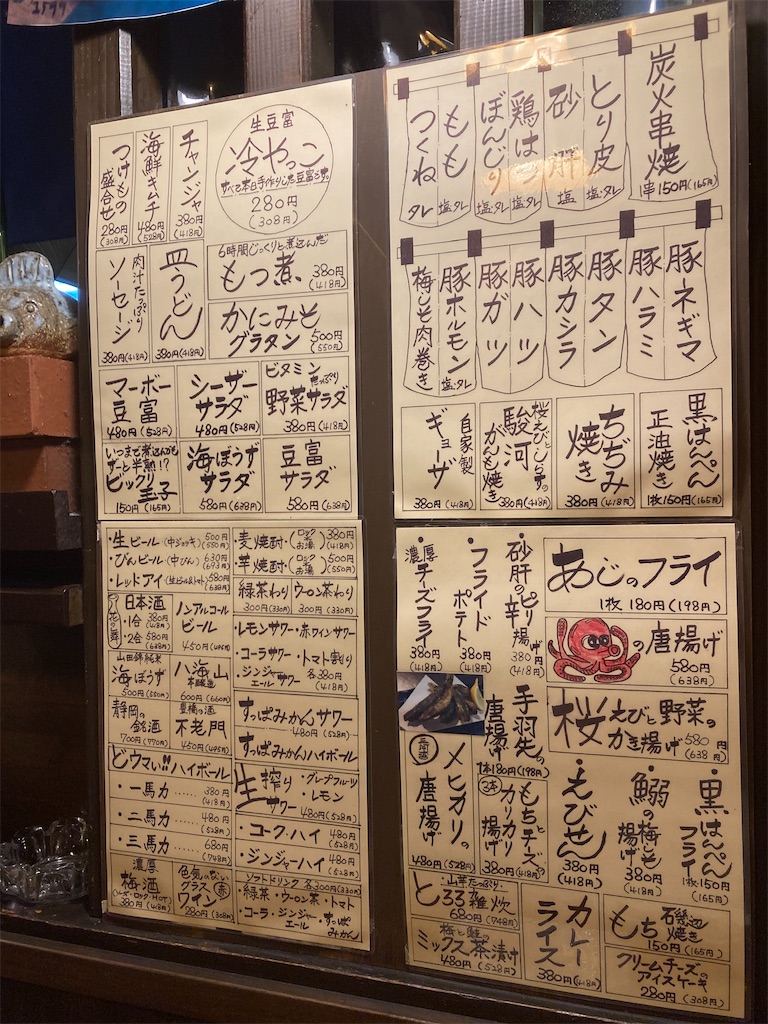 生豆富
冷やっこ
すべて本日手作りした豆富です。
280円
(308円)
チャンジャ
380円
(418円)
海鮮キムチ
480円
(528円)
つけもの
盛合せ
280円
(308円)
6時間じっくりと煮込んだ
もつ煮
380円
(418円)
皿うどん
380円(418円)
肉汁たっぷり
ソーセージ
380円(418円)
かにみそ
グラタン
500円
(550円)
ビタミン
たっぷり
野菜サラダ
380円(418円)
シーザー
サラダ
480円(528円)
マーボー
豆富
480円(528円)
豆富
サラダ
580円(638円)
海ぼうず
サラダ
580円(638円)
いつまで煮込んでも
ずーと半熟!?
ビックリ
玉子
150円(165円)
炭火串焼
1串150円(165円)
とり皮
塩・タレ
砂肝
塩
鶏はつ
塩・タレ
ぼんじり
塩・タレ
もも
塩・タレ
つくね
タレ
豚ネギマ
豚ハラミ
豚タン
豚カシラ
豚ハツ
豚ガツ
豚ホルモン
塩・タレ
梅しそ肉巻き
黒はんぺん
正油焼き
1枚150円(165円)
ちぢみ
焼き
380円(418円)
桜えびとしらすの
駿河
がんも焼き
380円(418円)
自家製
ギョーザ
380円(418円)
・生ビール(中ジョッキ) 500円
(550円)
・びんビール(中びん) 630円
(693円)
・レッドアイ(生ビール&トマト) 580円
(638円)
花の舞
日本酒
・1合 380円
(418円)
・2合 580円
(638円)
ノンアルコール
ビール
450円(495円)
山田錦純米
海ぼうず
500円(550円)
八海山
本醸造
600円(660円)
静岡の
銘酒
700円(770円)
豊橋の酒
不老門
450円(495円)
どウマい!!ハイボール
・一馬力…… 380円
(418円)
・二馬力…… 480円
(528円)
・三馬力…… 680円
(748円)
濃厚
梅酒
(ソーダ・ロック・HOT)
380円(418円)
色気のない
グラス
ワイン
赤
280円(308円)
麦焼酎・(ロック お湯) 380円
(418円)
芋焼酎・(ロック お湯) 500円
(550円)
緑茶わり
300円(330円)
ウーロン茶わり
300円(330円)
・レモンサワー・赤ワインサワー
・コーラサワー・トマト割り
・ジンジャーエールサワー 各380円
(418円)
すっぱみかんサワー
480円(528円)
すっぱみかんハイボール
生搾り
サワー
・グレープフルーツ
・レモン
480円
(528円)
・コーク・ハイ 480円
(528円)
・ジンジャーハイ 480円
(528円)
ソフトドリンク 各300円(330円)
・緑茶・ウーロン茶・トマト
・コーラ・ジンジャーエール・すっぱみかん
あじのフライ
1枚180円(198円)
の唐揚げ
580円
(638円)
桜えびと野菜の
かき揚げ
580円
(638円)
・砂肝のピリ辛揚げ
380円
(418円)
・フライドポテト
380円
(418円)
・濃厚
チーズフライ
380円
(418円)
手羽先の
唐揚げ
1本180円(198円)
メヒカリの
唐揚げ
480円(528円)
・黒はんぺん
フライ
1枚150円
(165円)
・鰯の梅しそ揚げ
380円
(418円)
・えびせん
380円
(418円)
もちとチーズの
カリカリ揚げ
3本
480円
(528円)
・山芋たっぷり・
とろろ雑炊
680円(748円)
梅と鮭の
ミックス茶漬け
480円(528円)
カレー
ライス
380円(418円)
もち
磯辺
焼き
150円(165円)
クリームチーズの
アイスケーキ
280円(308円)